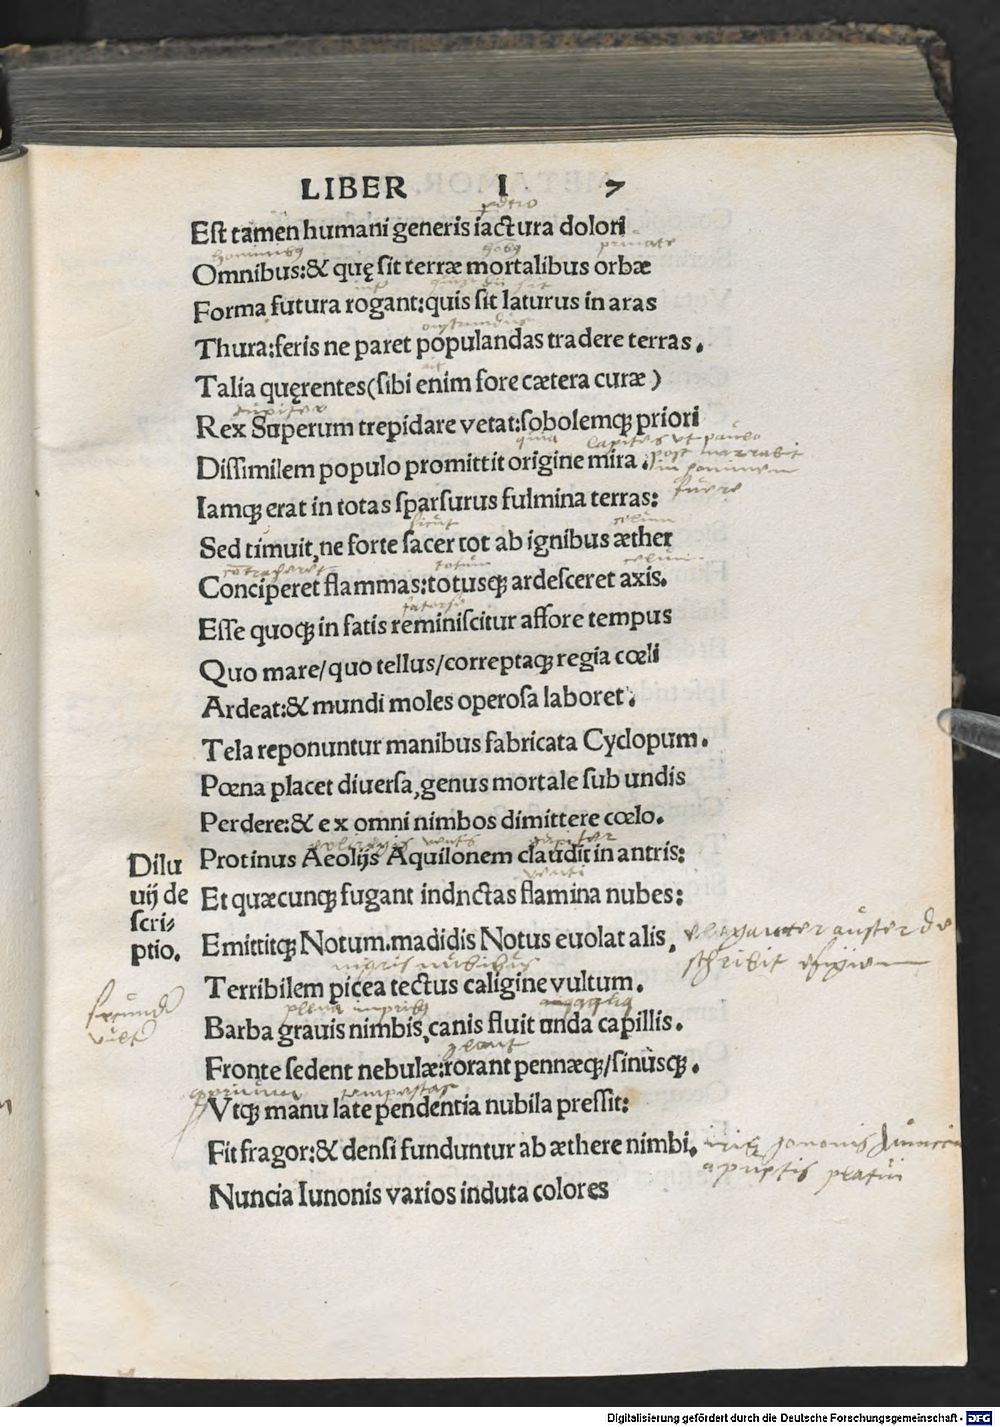 LIBER I 7
Est tamen humani generis iactura dolori
Omnibus:& quę sit terræ mortalibus orbæ
Forma futura rogant:quis sit laturus in aras
Thura:feris ne paret populandas tradere terras.
Talia quęrentes(sibi enim fore cætera curæ)
iupiter
Rex Superum trepidare vetat:sobolemq; priori
quia
Dissimilem populo promittit origine mira.
Iamq; erat in totas sparsurus fulmina terras:
Sed timuit,ne forte sacer tot ab ignibus æther
Conciperet flammas:totusq; ardesceret axis.
Esse quoq; in fatis reminiscitur affore tempus
Quo mare/quo tellus/correptaq; regia cœli
Ardeat:& mundi moles operosa laboret.
Tela reponuntur manibus fabricata Cyclopum.
Pœna placet diuersa,genus mortale sub undis
Perdere:& ex omni nimbos dimittere cœlo.
ventis iupiter
Protinus Aeolijs Aquilonem claudit in antris:
venti
Dilu
uij de
scri-
ptio.
Et quæcunq; fugant indnctas flamina nubes:
Emittitq; Notum.madidis Notus euolat alis,
eleganter auster de
scribit
nigris nubibus
Terribilem picea tectus caligine vultum.
plena
Barba grauis nimbis,canis fluit unda capillis.
Fronte sedent nebulæ:rorant pennæq;/sinusq;.
tempestas
Vtq; manu late pendentia nubila pressit:
Fit fragor:& densi funduntur ab æthere nimbi.
Nuncia Iunonis varios induta colores
Digitalisierung gefördert durch die Deutsche Forschungsgemeinschaft - DFG